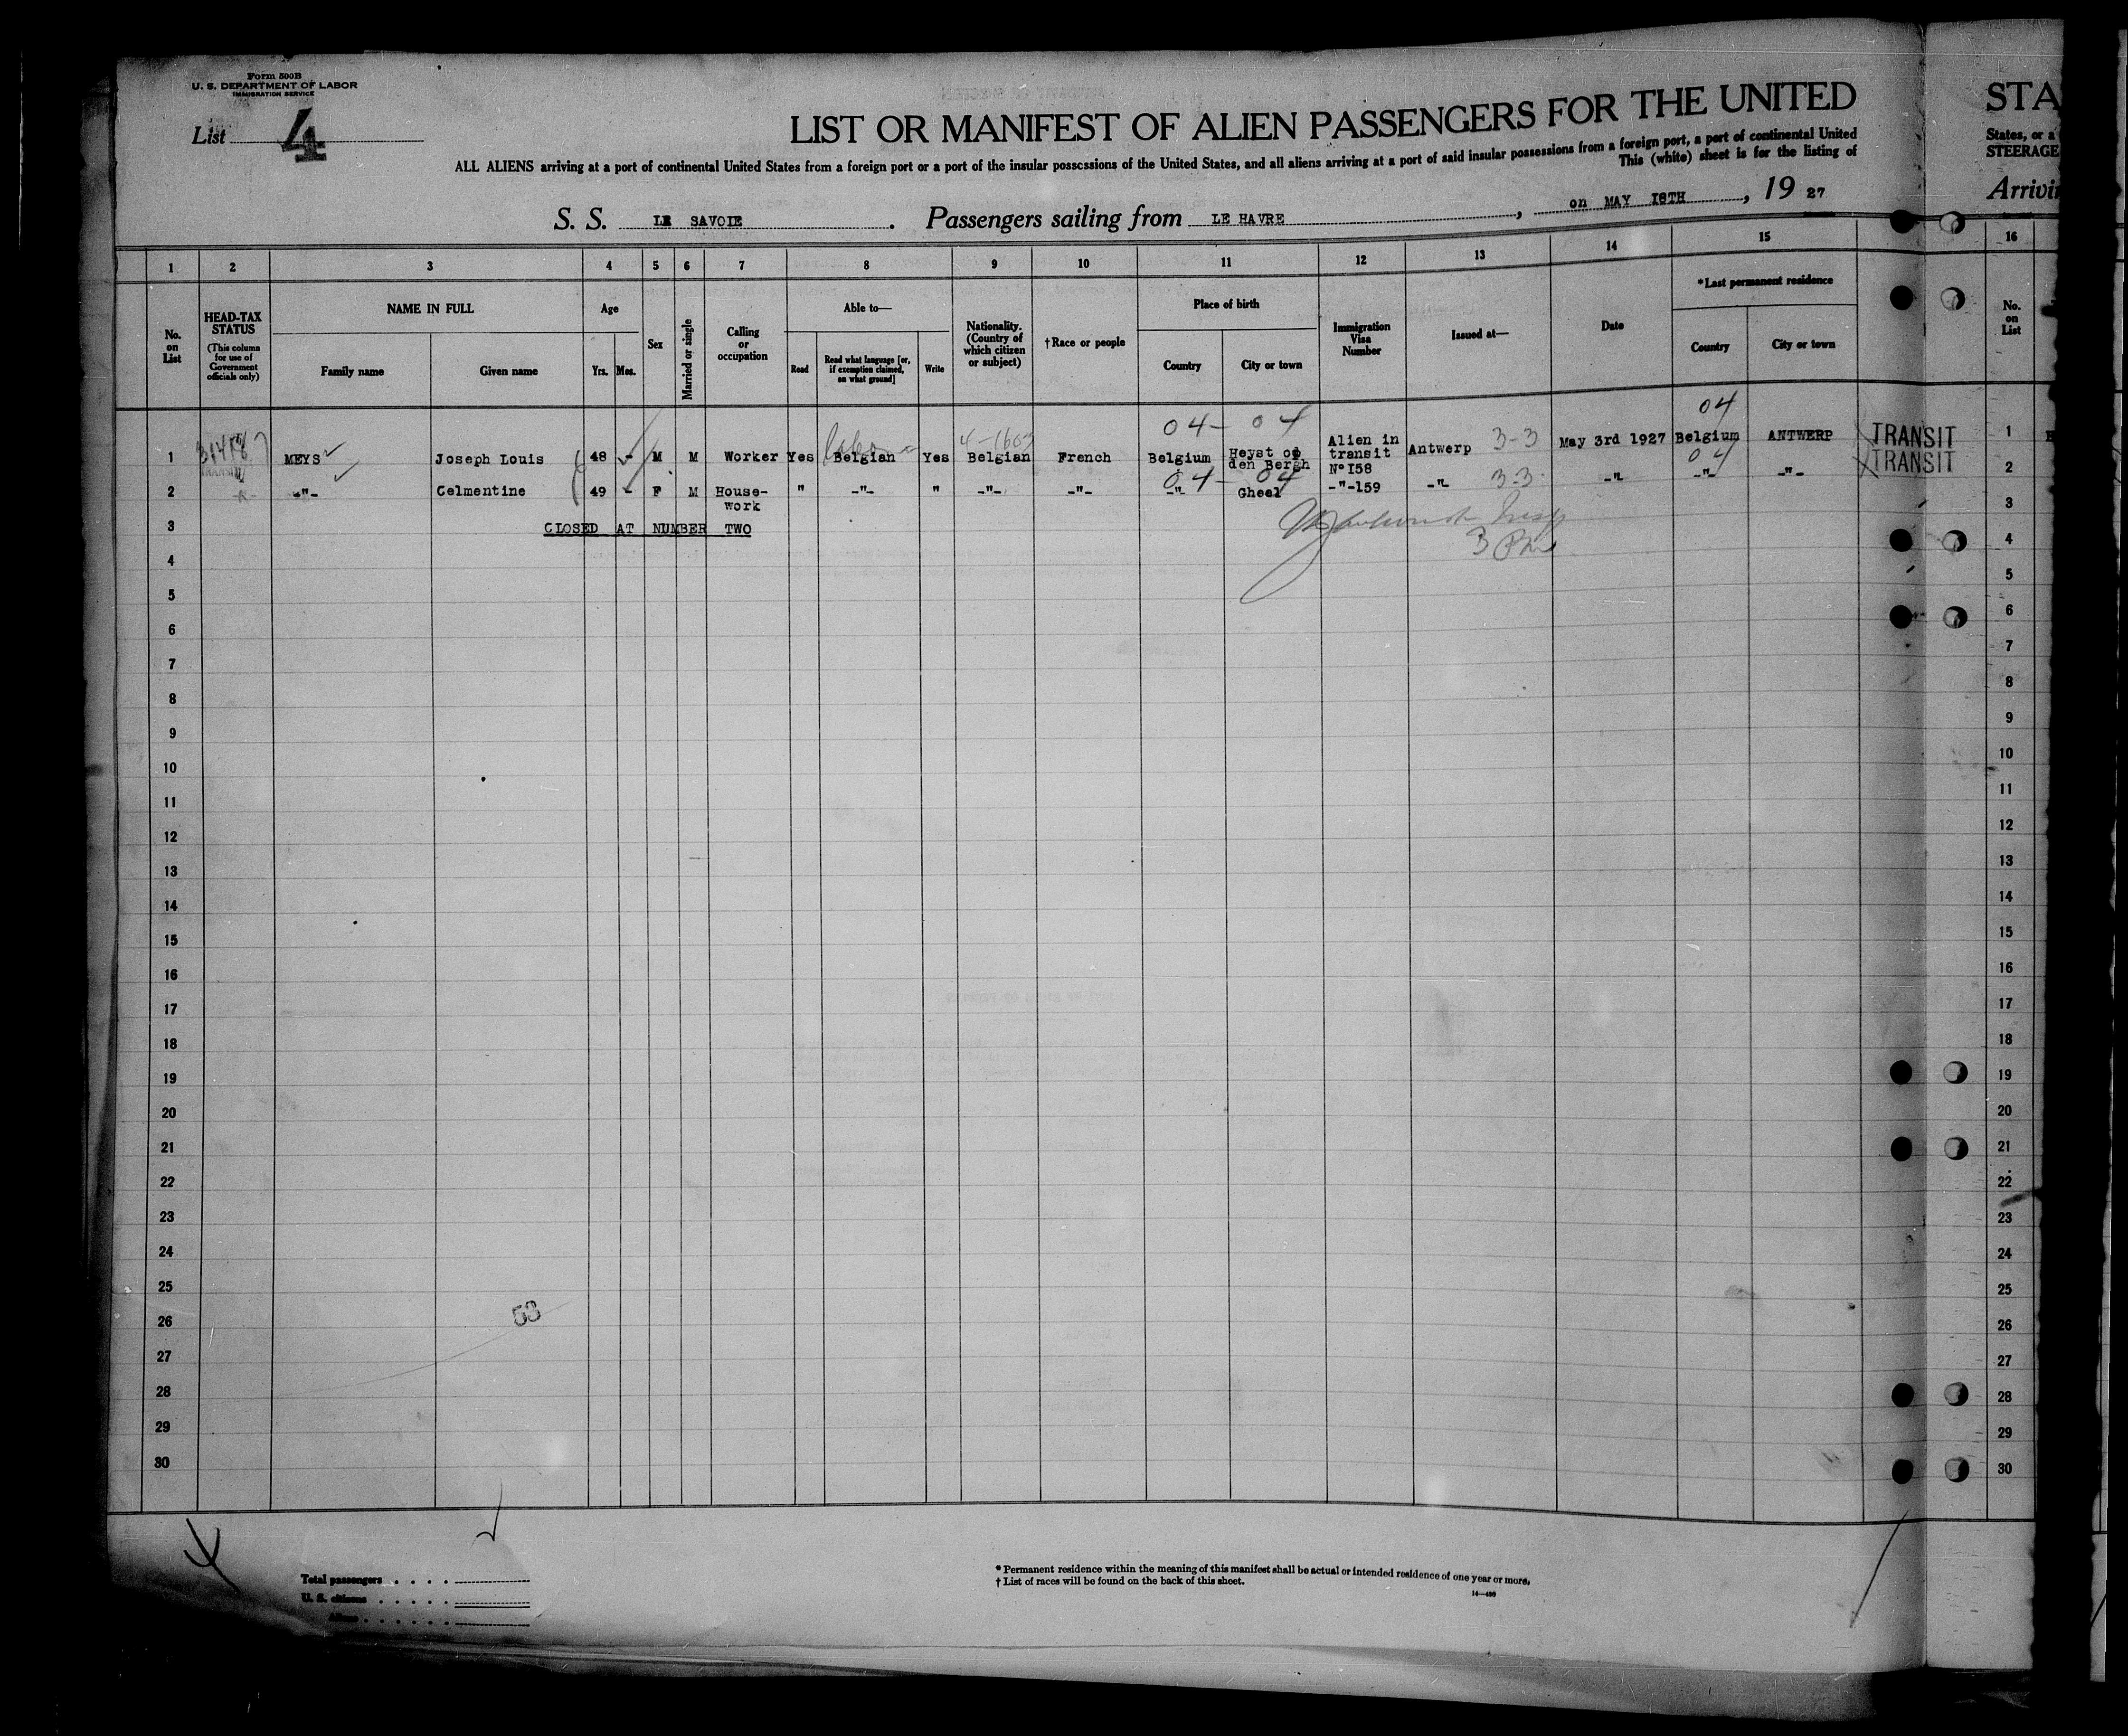 Form 500B
U. S. DEPARTMENT OF LABOR
IMMIGRATION SERVICE
List 4
LIST OR MANIFEST OF ALIEN PASSENGERS FOR THE UNITED
ALL ALIENS arriving at a port of continental United States from a foreign port or a port of the insular possessions of the United States, and all aliens arriving at a port of said insular possessions from a foreign port, a port of continental United
This (white) sheet is for the listing of
S. S. LE SAVOIE. Passengers sailing from LE HAVRE, on MAY 18TH, 19 27
STA
States, or a
STEERAGE
Arrivin
1 2 3 4 5 6 7 8 9 10 11 12 13 14 15 16
No. on List
HEAD-TAX STATUS
(This column for use of Government officials only)
NAME IN FULL
Family name
Given name
Age
Yrs. Mos.
Sex
Married or single
Calling or occupation
Able to—
Read
Read what language [or, if exemption claimed, on what ground]
Write
Nationality. (Country of which citizen or subject)
†Race or people
Place of birth
Country
City or town
Immigration Visa Number
Issued at—
Date
*Last permanent residence
Country
City or town
No. on List
04- 04 04
1 MEYS Joseph Louis 48 - M M Worker Yes Belgian Yes Belgian French Belgium Heyst op den Bergh Alien in transit No 158 Antwerp 3-3 May 3rd 1927 Belgium ANTWERP TRANSIT 1
04- 04 04
2 -"- Celmentine 49 - F M House-work " -"- " -"- -"- -"- Gheel -"-159 -"- 3-3 -"- -"- -"- TRANSIT 2
3 CLOSED AT NUMBER TWO 3
4 4
5 5
6 6
7 7
8 8
9 9
10 10
11 11
12 12
13 13
14 14
15 15
16 16
17 17
18 18
19 19
20 20
21 21
22 22
23 23
24 24
25 25
53
26 26
27 27
28 28
29 29
30 30
Total passengers
U. S. citizens
Aliens
* Permanent residence within the meaning of this manifest shall be actual or intended residence of one year or more.
† List of races will be found on the back of this sheet.